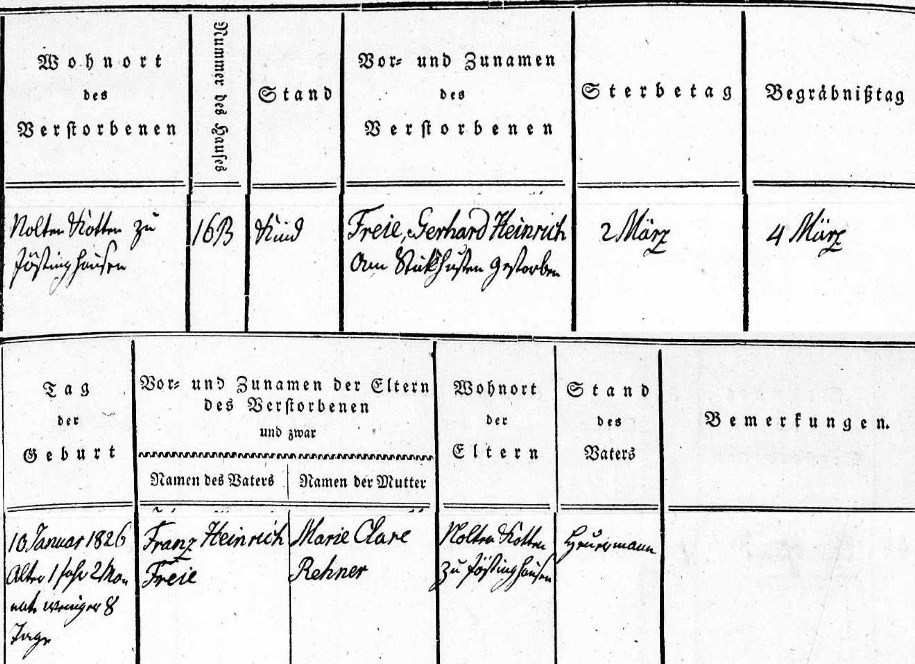 Wohnort
des
Verstorbenen
Nummer des Hauses
Stand
Vor- und Zunamen
des
Verstorbenen
Sterbetag
Begräbnißtag
Nolten Kotten zu
Jöstinghausen
16B
Kind
Freie, Gerhard Heinrich
Am Stickhusten gestorben
2 März
4 März
Tag
der
Geburt
Vor- und Zunamen der Eltern
des Verstorbenen
und zwar
Namen des Vaters
Namen der Mutter
Wohnort
der
Eltern
Stand
des
Vaters
Bemerkungen.
10 Januar 1826
Alter 1 Jahr 2 Mo-
nate weniger 8
Tage
Franz Heinrich
Freie
Marie Clare
Rehner
Nolten Kotten
zu Jöstinghausen
Heuermann